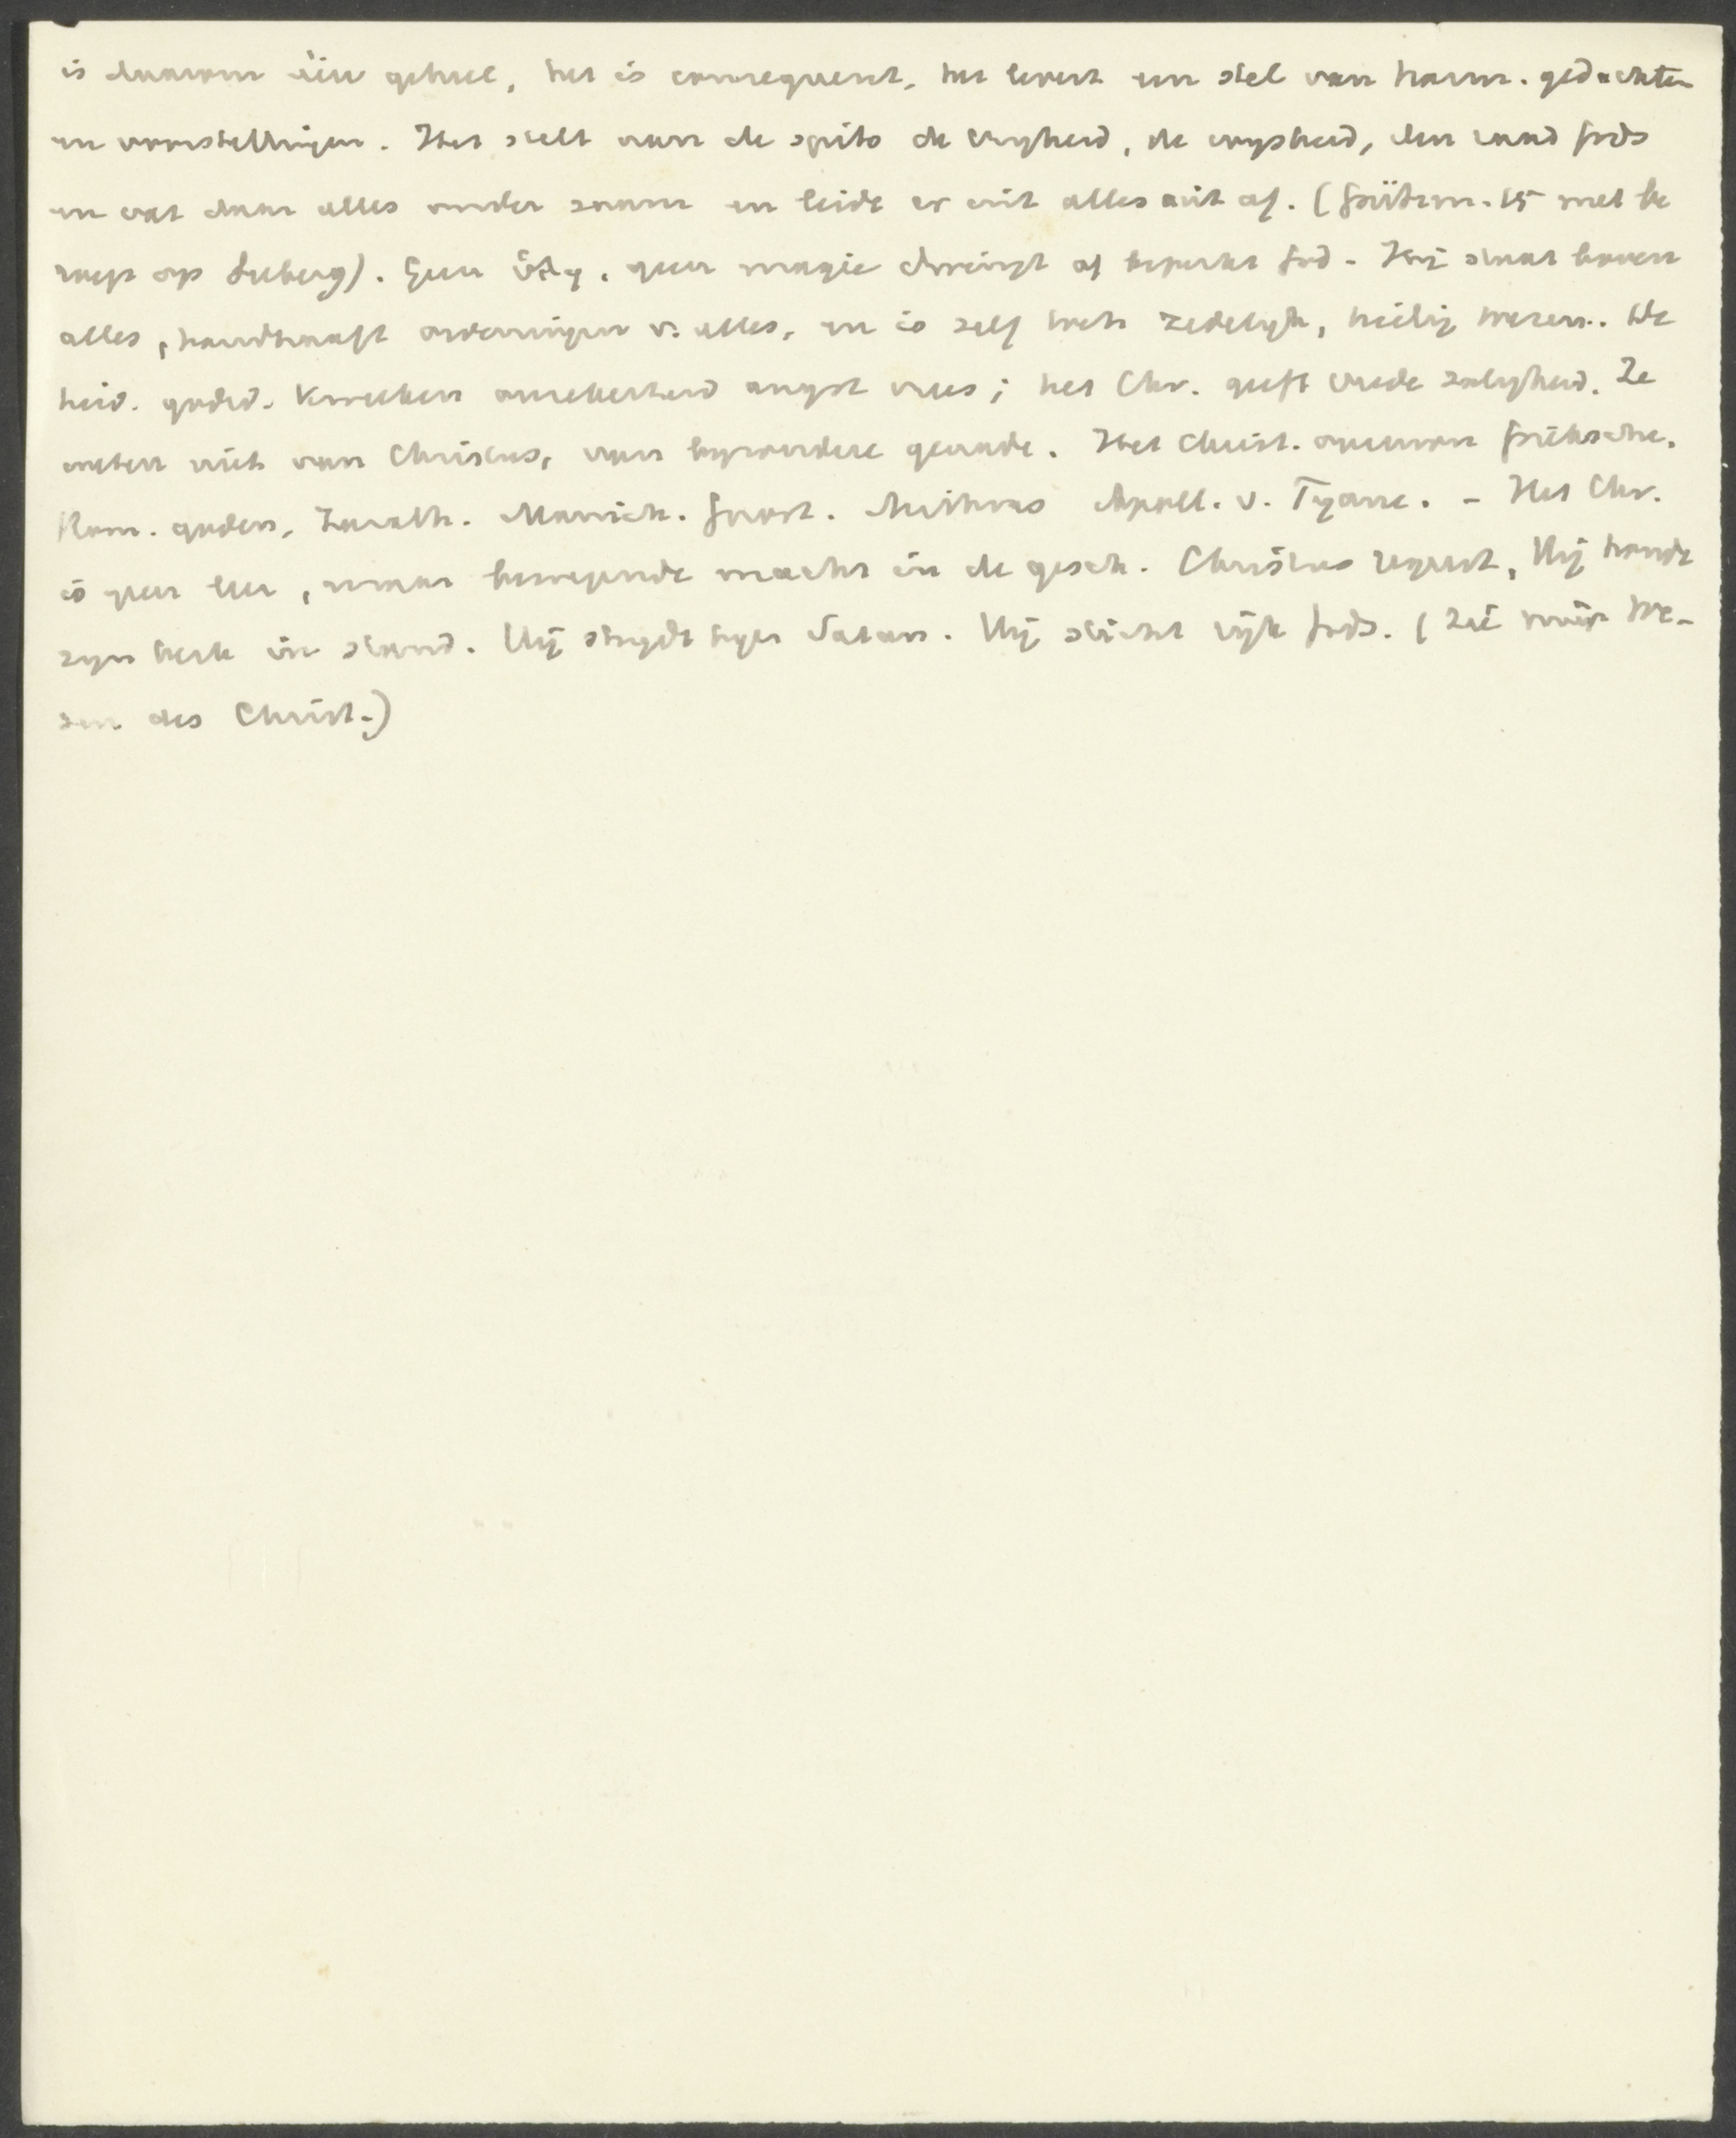 is daarom één geheel, het is consequent, het levert een stel van harm. gedachten
en voorstellingen. Het stelt aan de spits de vrijheid, de wijsheid, den raad Gods
en vat daar alles onder saam en leidt er uit alles uit af. (Grützm. 15 met be
roep op Seeberg). Geen ὕλη, geen magie dwingt of beperkt God. Hij staat boven
alles, handhaaft ordeningen v. alles, en is zelf zedelijk, heilig wezen. De
heid. godsd. kweeken onzekerheid angst vrees; het Chr. geeft vrede zaligheid. Ze
weten niets van Christus, van byzondere genade. Het Christ. overwon Grieksche,
Rom. goden, Zarath. Manich. Gnost. Mithras Apoll. v. Tyane. - Het Chr.
is geen leer, maar bewegende macht in de gesch. Christus regeert, Hij houdt
zijn kerk in stand. Hij strijdt tegen Satan. Hij sticht rijk Gods. (Zie mijn We-
zen des Christ.)